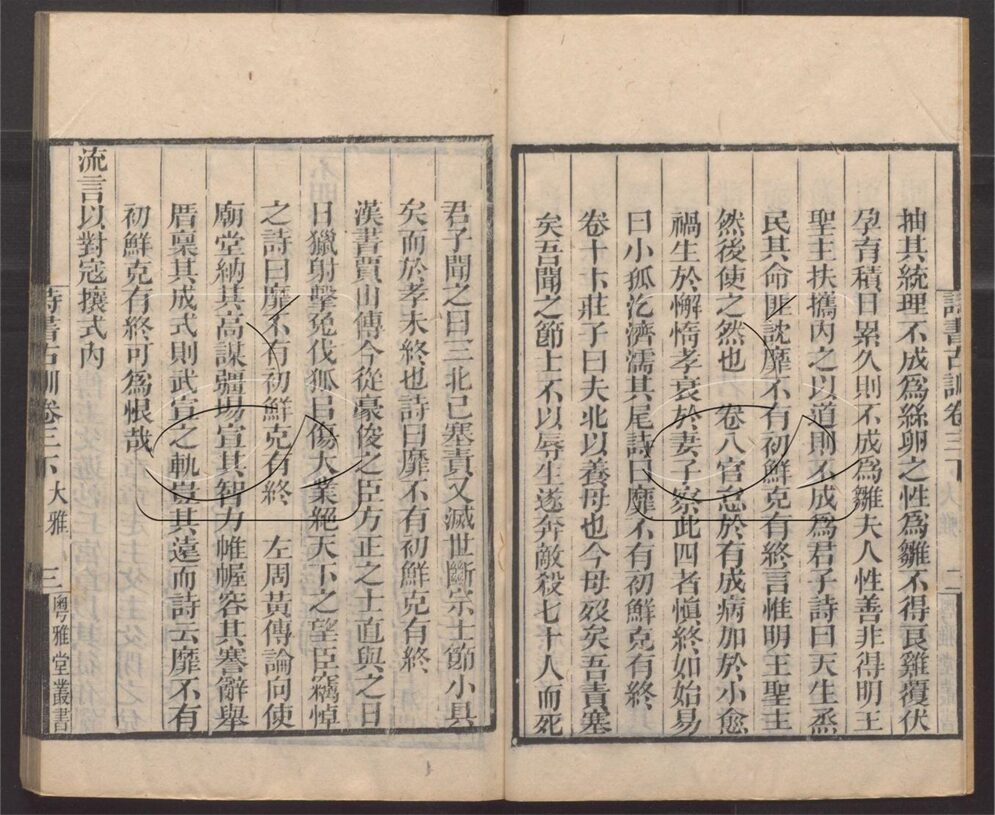 抽其統理不成爲絲卵之性爲雛不得良雞覆伏
孕育積日累久則不成爲雛夫人性善非得明王
聖主扶攜內之以道則不成爲君子詩曰天生烝
民其命匪諶靡不有初鮮克有終言惟明王聖主
然後使之然也　卷八官怠於有成病加於小愈
禍生於懈惰孝衰於妻子察此四者愼終如始易
曰小狐汔濟濡其尾詩曰靡不有初鮮克有終
卷十卞莊子曰夫北以養母也今母歿矣吾責塞
矣吾聞之節士不以辱生遂奔敵殺七十人而死
詩書古訓卷三下　大雅　二
君子聞之曰三北已塞責又滅世斷宗士節小具
矣而於孝未終也詩曰靡不有初鮮克有終
漢書賈山傳今從豪俊之臣方正之士直與之日
日獵射擊兔伐狐以傷大業絕天下之望臣竊悼
之詩曰靡不有初鮮克有終　左周黃傳論向使
廟堂納其高謀疆場宣其智力帷幄容其謇辭舉
厝稟其成式則武宣之軌豈其遠而詩云靡不有
初鮮克有終可爲恨哉
流言以對寇攘式內
詩書古訓卷三下　大雅　三　粵雅堂叢書